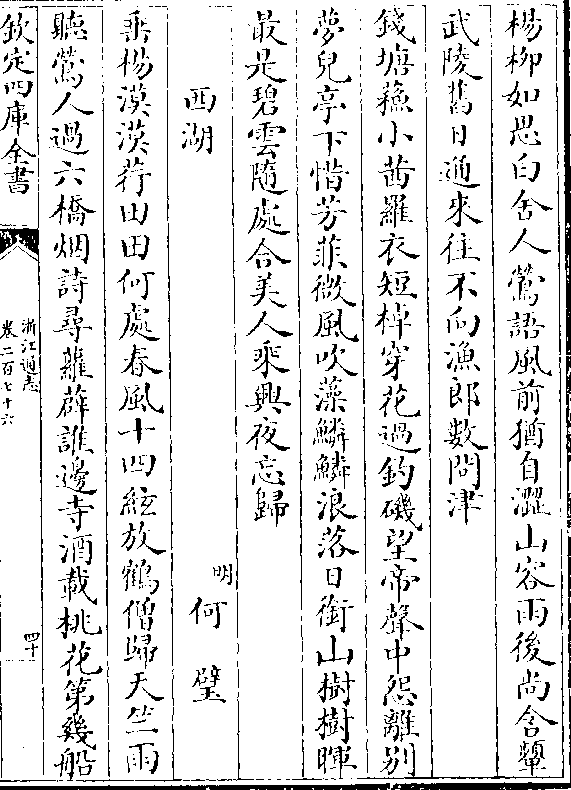 楊柳如思白舍人鶯語風前猶自澀山容雨後尚含顰
武陵舊日通來往不向漁郎數問津
錢塘蘓小茜羅衣短棹穿花過釣磯望帝聲中怨離别
夢兒亭下惜芳菲微風吹藻鱗鱗浪落日銜山樹樹暉
最是碧雲隨處合美人乘興夜忘歸
西湖
明何璧
垂楊漠漠荇田田何處春風十四絃放鶴僧歸天竺雨
聽鶯人過六橋烟詩尋蘿薜誰邊寺酒載桃花第幾船
欽定四庫全書
浙江通志
卷二百七十六
四十